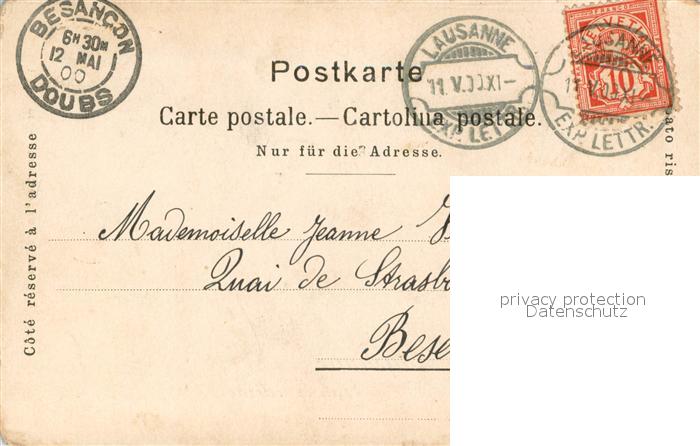 BESANÇON
6H 30M
12 MAI
00
DOUBS
LAUSANNE
11.V.00.XI-
EXP. LETTR.
HELVETIA
FRANCO
10
LAUSANNE
EXP. LETTR.
Postkarte
Carte postale. — Cartolina postale.
Nur für die Adresse.
Côté réservé à l'adresse
Mademoiselle Jeanne
Quai de
privacy protection
Datenschutz